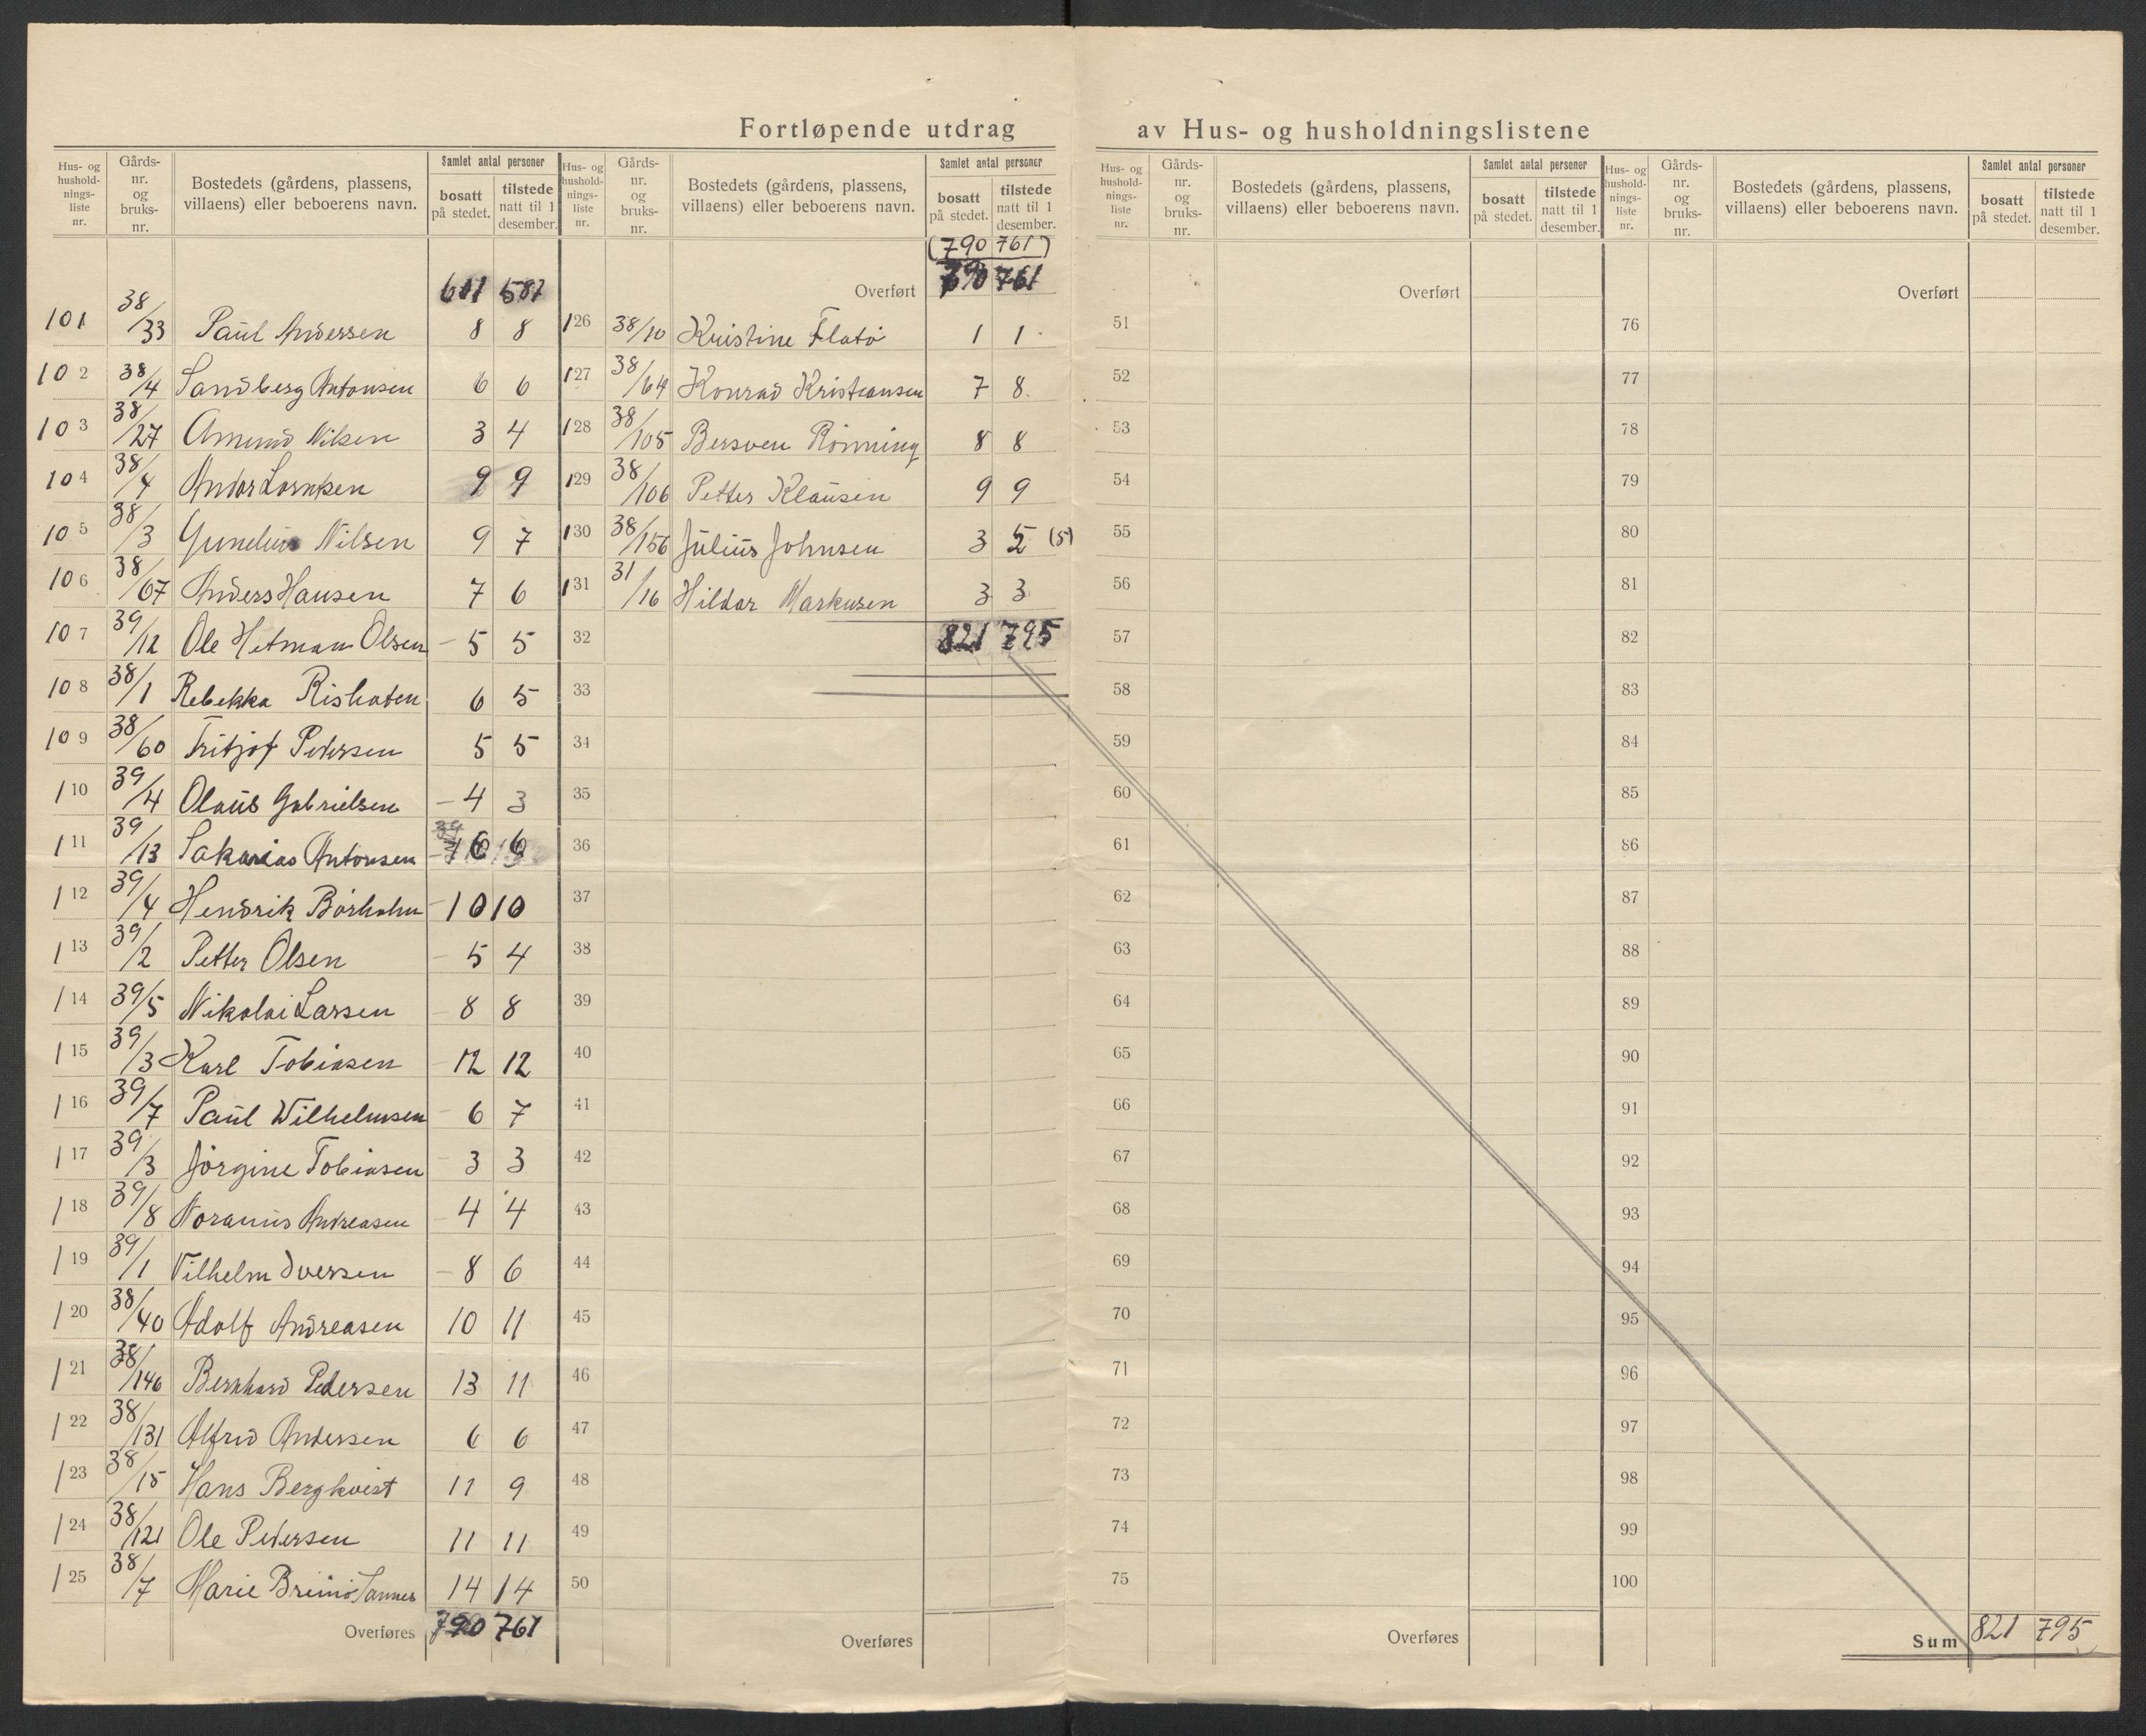 Fortløpende utdrag av Hus- og husholdningslistene
Hus- og hushold-nings-liste nr. Gårds-nr. og bruks-nr. Bostedets (gårdens, plassens, villaens) eller beboerens navn. Samlet antal personer bosatt på stedet. tilstede natt til 1 desember.
601 581
101 38/33 Paul Andersen 8 8
102 38/4 Sandberg Antonsen 6 6
103 38/27 Amund Nilsen 3 4
104 38/4 Andor Lorntsen 9 9
105 38/3 Gunelius Nilsen 9 7
106 38/67 Anders Hansen 7 6
107 39/12 Ole Hetman Olsen – 5 5
108 38/1 Rebekka Rishaten 6 5
109 38/60 Fritjof Pedersen 5 5
110 39/4 Olaus Gabrielsen – 4 3
111 39/13 Sakarias Antonsen 6 6
112 39/4 Hendrik Bårholm – 10 10
113 39/2 Petter Olsen – 5 4
114 39/5 Nikolai Larsen – 8 8
115 39/3 Karl Tobiasen – 12 12
116 39/7 Paul Wilhelmsen – 6 7
117 39/3 Jörgine Tobiasen – 3 3
118 39/8 Noranus Andreasen – 4 4
119 39/1 Vilhelm Iversen – 8 6
120 38/40 Adolf Andreasen 10 11
121 38/146 Bernhard Pedersen 13 11
122 38/131 Alfrid Andersen 6 6
123 38/15 Hans Bergkvist 11 9
124 38/121 Ole Pedersen 11 11
125 38/7 Marie Sannes 14 14
Overføres 790 761
Hus- og hushold-nings-liste nr. Gårds-nr. og bruks-nr. Bostedets (gårdens, plassens, villaens) eller beboerens navn. Samlet antal personer bosatt på stedet. tilstede natt til 1 desember.
(790 761)
Overført 790 761
126 38/10 Kristine Flatö 1 1
127 38/64 Konrad Kristiansen 7 8
128 38/105 Bersven Rönning 8 8
129 38/106 Petter Klausen 9 9
130 38/156 Julius Johnsen 3 5 (5)
131 31/16 Hildor Markusen 3 3
32 821 795
33
34
35
36
37
38
39
40
41
42
43
44
45
46
47
48
49
50
Overføres
Hus- og hushold-nings-liste nr. Gårds-nr. og bruks-nr. Bostedets (gårdens, plassens, villaens) eller beboerens navn. Samlet antal personer bosatt på stedet. tilstede natt til 1 desember.
Overført
51
52
53
54
55
56
57
58
59
60
61
62
63
64
65
66
67
68
69
70
71
72
73
74
75
Overføres
Hus- og hushold-nings-liste nr. Gårds-nr. og bruks-nr. Bostedets (gårdens, plassens, villaens) eller beboerens navn. Samlet antal personer bosatt på stedet. tilstede natt til 1 desember.
Overført
76
77
78
79
80
81
82
83
84
85
86
87
88
89
90
91
92
93
94
95
96
97
98
99
100
Sum 821 795